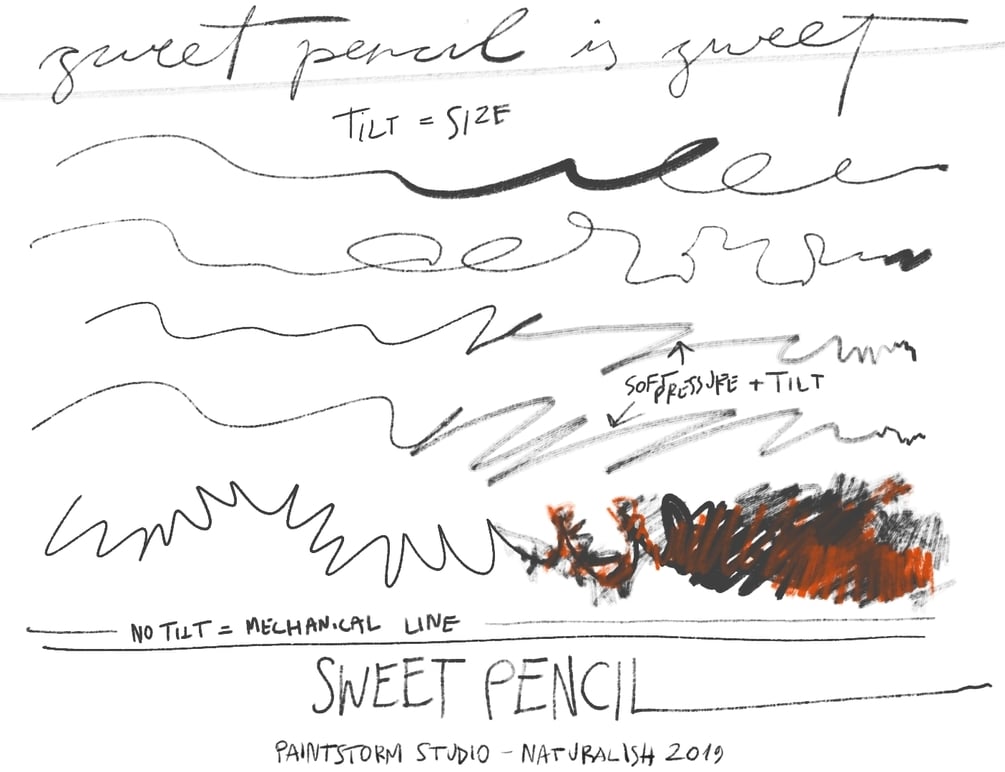 sweet pencil is sweet
TILT = SIZE
SOFT PRESSURE + TILT
NO TILT = MECHANICAL LINE
SWEET PENCIL
PAINTSTORM STUDIO - NATURALISH 2019